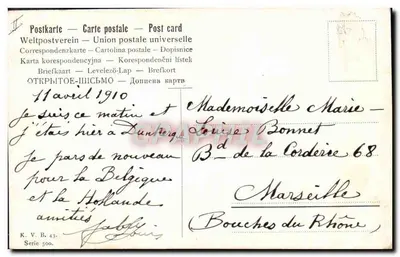 II
Postkarte — Carte postale — Post card
Weltpostverein — Union postale universelle
Correspondenzkarte — Cartolina postale — Dopisnice
Karta korespondencyjna — Korespondenční lístek
Briefkaart — Levelező-Lap — Brefkort
ОТКРЫТОЕ-ПИСЬМО — Дописна карта
11 avril 1910
Je suis ce matin et
j'étais hier à Dunkerq
Je pars de nouveau
pour la Belgique
et la Hollande
amitiés
Louis
Mademoiselle Marie-
Louise Bonnet
Bd de la Corderie 68
Marseille
(Bouches du Rhône)
K. V. B. 42.
Serie 500.